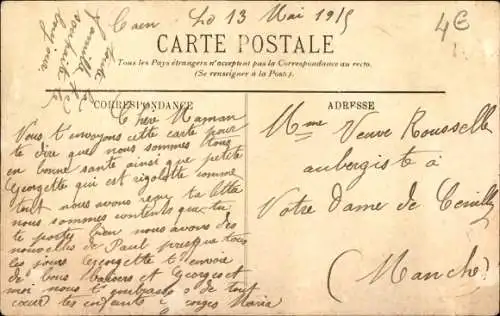 Caen Le 13 Mai 1915
4€
toute la
famille te
souhaite le
bonjour
CARTE POSTALE
Tous les Pays étrangers n'acceptent pas la Correspondance au recto.
(Se renseigner à la Poste.)
CORRESPONDANCE
Chère Maman
Vous t'envoyons cette carte pour
te dire que nous sommes tous
en bonne santé ainsi que petite
Georgette qui est rigolotte comme
tout nous avons reçu ta lettre
nous sommes contents que tu
te portes bien nous avons des
nouvelles de Paul presque tous
les jours Georgette t'envoie
de bons baisers et Georges et
moi nous t'embrassons de tout
cœur tes enfants Georges Maria
ADRESSE
Mme Veuve Rousselle
aubergiste à
Notre Dame de Cenilly
(Manche)